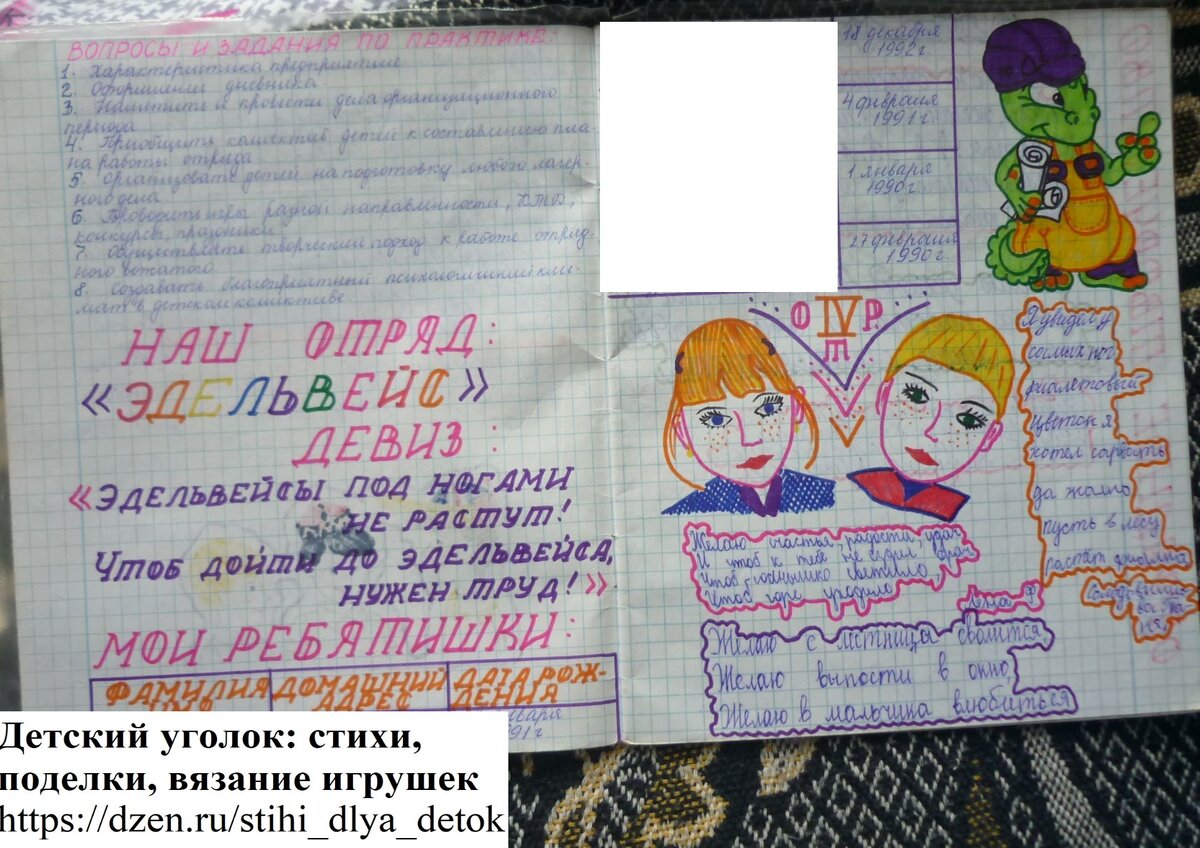 ВОПРОСЫ И ЗАДАНИЯ ПО ПРАКТИКЕ:
1. Характеристика предприятия
2. Оформление дневника
3. Наметить и провести дела организационного
периода
4. Приобщить коллектив детей к составлению пла-
на работы отряда
5. Организовать детей на подготовку любого лагер-
ного дела
6. Проводить игры разной направленности, КТД,
конкурсы, праздники
7. Осуществлять творческий подход к работе отряд-
ного вожатого
8. Создавать благоприятный психологический кли-
мат в детском коллективе
НАШ ОТРЯД:
«ЭДЕЛЬВЕЙС»
ДЕВИЗ:
«ЭДЕЛЬВЕЙСЫ ПОД НОГАМИ
НЕ РАСТУТ!
ЧТОБ ДОЙТИ ДО ЭДЕЛЬВЕЙСА,
НУЖЕН ТРУД!»
МОИ РЕБЯТИШКИ:
ФАМИЛИЯ
ДОМАШНИЙ АДРЕС
ДАТА РОЖ-
ДЕНИЯ
18 декабря
1992г
4 февраля
1991г.
1 января
1990г
27 февраля
1990г.
О IV Р
Т
Я увидел у
самых ног
фиалетовый
цветок я
хотел сарвать
да жално
пусть в лесу
растёт
Желаю счастья, радости, удач
И чтоб к тебе не ездил врач
Чтоб солнышко светило,
Чтоб горе уходило
Лена Ф
Желаю с лстницы свалится,
Желаю выпости в окно,
Желаю в мальчика влюбиться
Детский уголок: стихи,
поделки, вязание игрушек
https://dzen.ru/stihi_dlya_detok